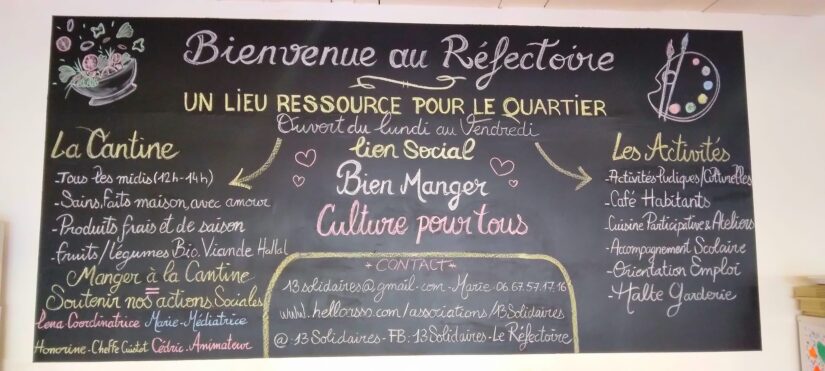 Bienvenue au Réfectoire
UN LIEU RESSOURCE POUR LE QUARTIER
Ouvert du lundi au Vendredi
La Cantine
Tous les midis (12h-14h)
-Sains, faits maison, avec amour
-Produits frais et de saison
-fruits/légumes Bio, Viande Hallal
Manger à la Cantine
=
Soutenir nos actions Sociales
Lena Coordinatrice Marie-Médiatrice
Honorine-Cheffe Cuistot Cédric-Animateur
lien Social
Bien Manger
Culture pour tous
Les Activités
-Activités Ludiques/Culturelles
-Café Habitants
-Cuisine Participative & Ateliers
-Accompagnement Scolaire
-Orientation Emploi
-Halte Garderie
CONTACT
13solidaires@gmail.com - Marie 06.67.57.17.16
www.helloasso.com/associations/13Solidaires
@-13Solidaires - FB: 13Solidaires-Le Réfectoire